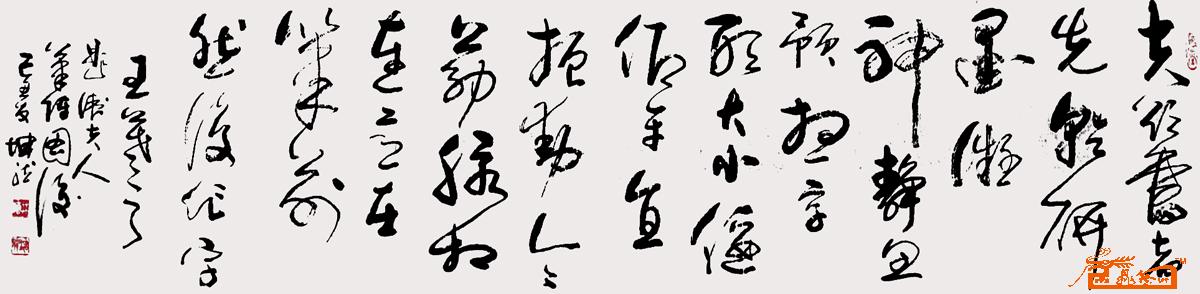 夫欲書者
先乾研
墨凝
神靜思
預想字
形大小偃
仰平直
振動令
筋脈相
連意在
筆前
然後作字
王羲之
題衛夫人
筆陣圖後
己丑夏坤